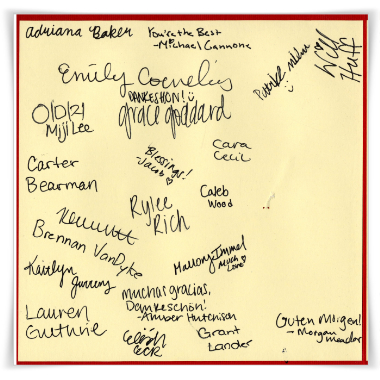 Adriana Baker
You're the Best
-Michael Gannone
Will
Huff
Emily Cornelius
DANKESHON!
grace goddard
Miji Lee
Cara
Cecil
Blessings!
-Jacob
Carter
Bearman
Caleb
Wood
Rylee
Rich
Brennan VanDyke
Mallory Immel
Much
Love
Kaitlyn
muchas gracias,
Dankeschön!
-Amber Hutchison
Lauren
Guthrie
Grant
Lander
Guten Morgen!
- Morgan
Meador